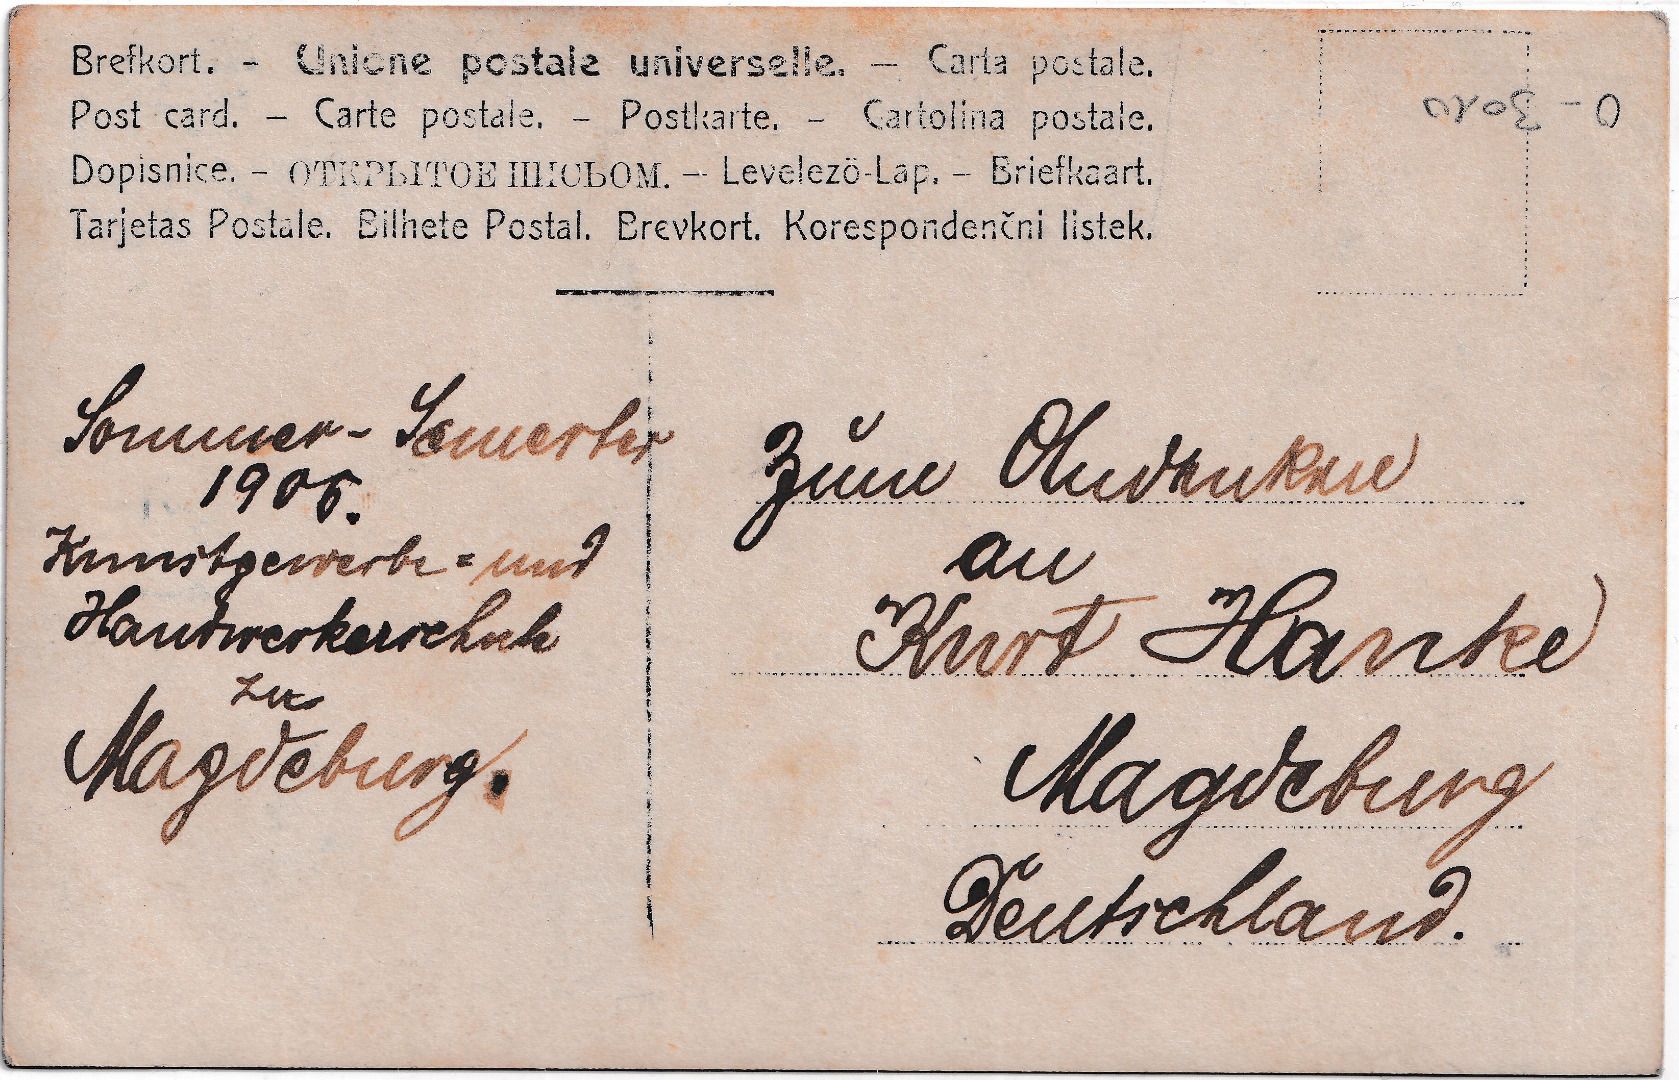 Brefkort. - Unione postale universelle. — Carta postale.
Post card. – Carte postale. – Postkarte. – Cartolina postale.
Dopisnice. – ОТКРЫТОЕ ПИСЬОМ. — Levelezö-Lap. – Briefkaart.
Tarjetas Postale. Bilhete Postal. Brevkort. Korespondenčni listek.
Sommer- Semester
1906.
Kunstgewerbe= und
Handwerkerschule
zu
Magdeburg.
Zum Andenken
an
Kurt Hanke
Magdeburg
Deutschland.